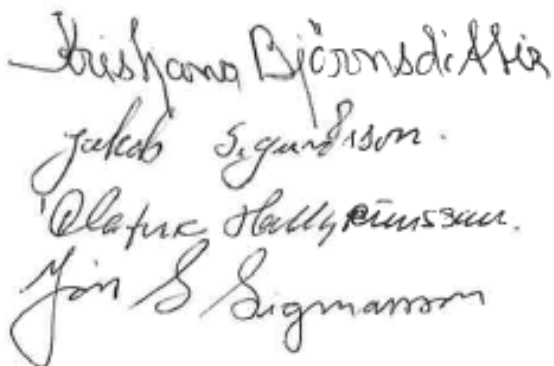 Kristjana Björnsdóttir
Jakob Sigurðsson.
Ólafur Hallgrímsson.
Jón S Sigmarsson